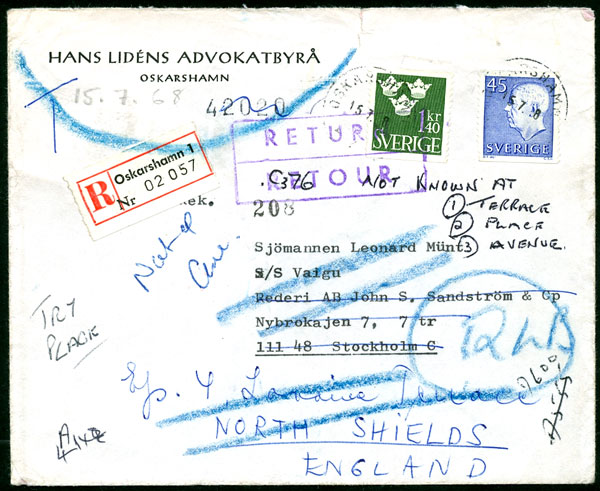 HANS LIDÉNS ADVOKATBYRÅ
OSKARSHAMN
15.7.68
42020
1 kr
40
SVERIGE
45
SVERIGE
RETUR
RETOUR
R
Oskarshamn 1
Nr 02 057
ek.
C376
208
NOT KNOWN AT
① TERRACE
② PLACE
③ AVENUE.
Sjömannen Leonard Münt
S/S Vaigu
Rederi AB John S. Sandström & Co
Nybrokajen 7, 7 tr
111 48 Stockholm C
Not at
TRY
PLACE
4,
Terrace
NORTH SHIELDS
ENGLAND